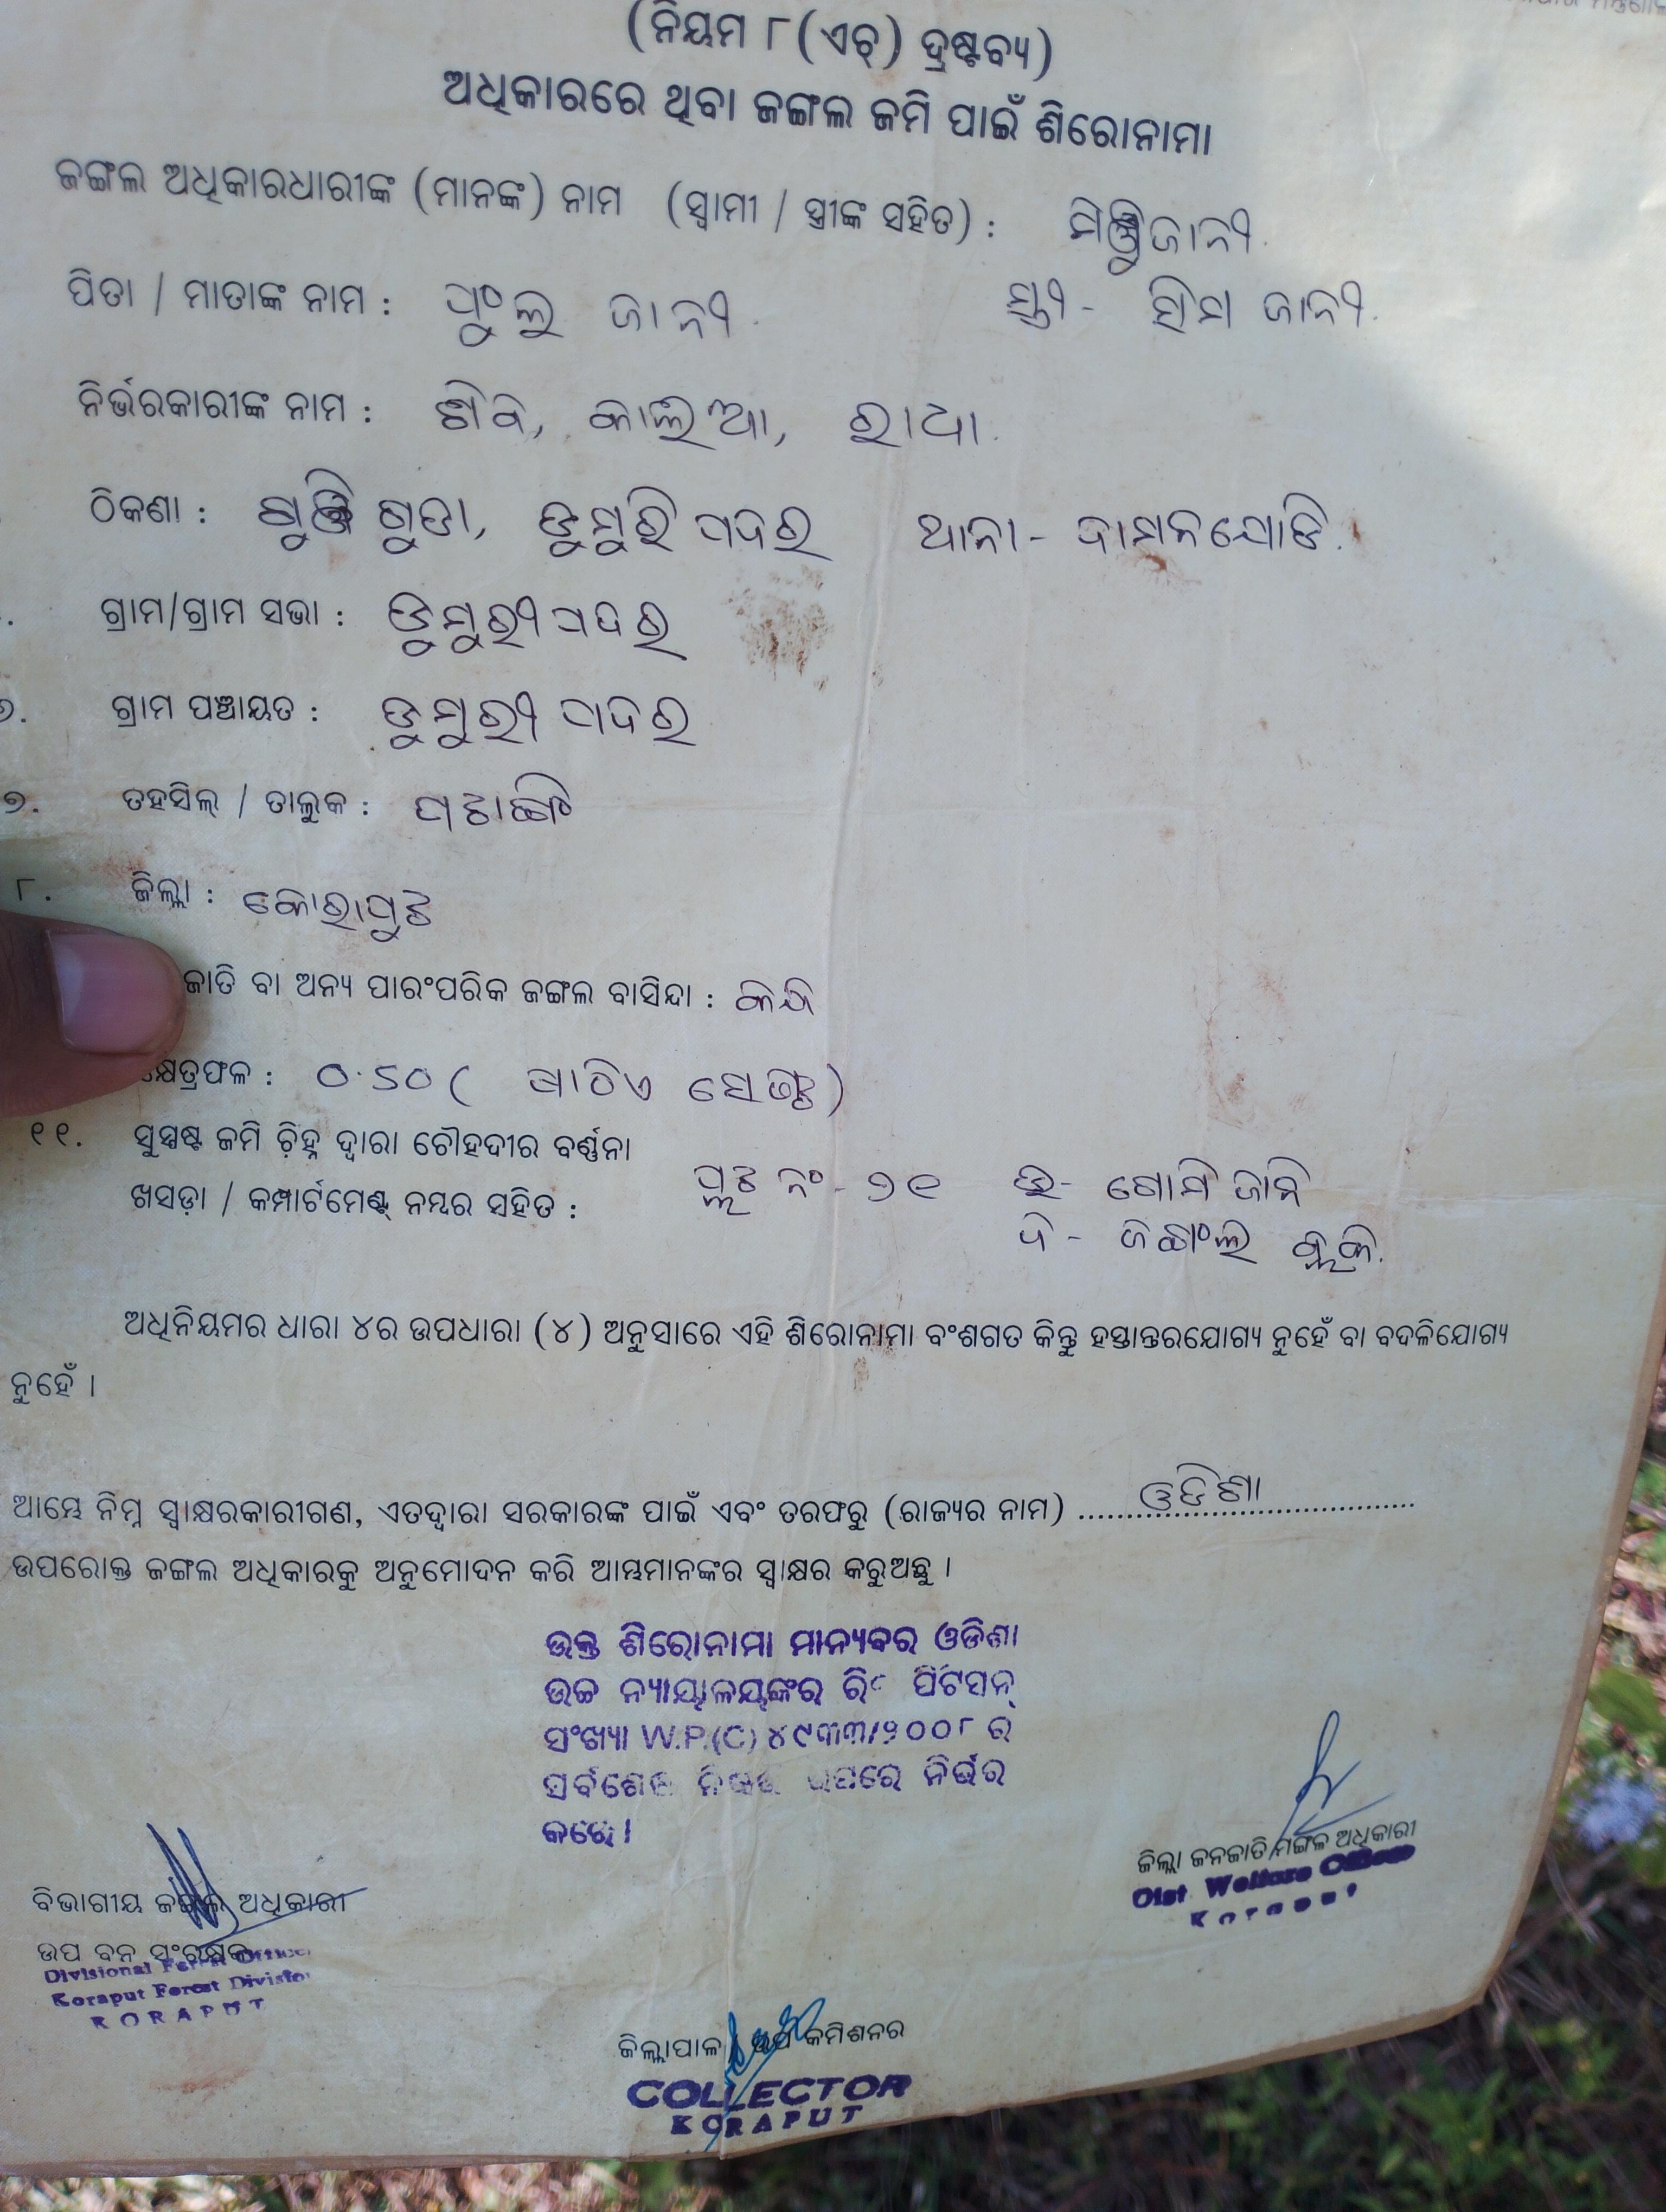 (ନିୟମ ୮(ଏଚ୍) ଦ୍ରଷ୍ଟବ୍ୟ)
ଅଧିକାରରେ ଥିବା ଜଙ୍ଗଲ ଜମି ପାଇଁ ଶିରୋନାମା
ଜଙ୍ଗଲ ଅଧିକାରଧାରୀଙ୍କ (ମାନଙ୍କ) ନାମ (ସ୍ୱାମୀ / ସ୍ତ୍ରୀଙ୍କ ସହିତ) : ଜାନୀ
ପିତା / ମାତାଙ୍କ ନାମ : ଜାନୀ ସ୍ତ୍ରୀ - ଜାନୀ
ନିର୍ଭରକାରୀଙ୍କ ନାମ : ଶିବ, କାଲିଆ, ରାଧା
ଠିକଣା : ଗୁଡା, ଡୁମୁରିପଦର ଥାନା - ଦାମନଯୋଡି
ଗ୍ରାମ/ଗ୍ରାମ ସଭା : ଡୁମୁରୀପଦର
ଗ୍ରାମ ପଞ୍ଚାୟତ : ଡୁମୁରୀପଦର
୭. ତହସିଲ୍ / ତାଲୁକ : ପଟାଙ୍ଗି
୮. ଜିଲ୍ଲା : କୋରାପୁଟ
ଜାତି ବା ଅନ୍ୟ ପାରଂପରିକ ଜଙ୍ଗଲ ବାସିନ୍ଦା :
କ୍ଷେତ୍ରଫଳ : ୦.୬୦ ( ଷାଠିଏ ସେଣ୍ଟ)
୧୧. ସୁସ୍ପଷ୍ଟ ଜମି ଚିହ୍ନ ଦ୍ୱାରା ଚୌହଦୀର ବର୍ଣ୍ଣନା
ଖସଡ଼ା / କମ୍ପାର୍ଟମେଣ୍ଟ୍ ନମ୍ବର ସହିତ : ପ୍ଲଟ ନଂ - ୭୧ ଉ - ଜାନି
ଦ - ଜଙ୍ଗଲ
ଅଧିନିୟମର ଧାରା ୪ର ଉପଧାରା (୪) ଅନୁସାରେ ଏହି ଶିରୋନାମା ବଂଶଗତ କିନ୍ତୁ ହସ୍ତାନ୍ତରଯୋଗ୍ୟ ନୁହେଁ ବା ବଦଳିଯୋଗ୍ୟ
ନୁହେଁ ।
ଆମ୍ଭେ ନିମ୍ନ ସ୍ୱାକ୍ଷରକାରୀଗଣ, ଏତଦ୍ଦ୍ୱାରା ସରକାରଙ୍କ ପାଇଁ ଏବଂ ତରଫରୁ (ରାଜ୍ୟର ନାମ) ଓଡିଶା
ଉପରୋକ୍ତ ଜଙ୍ଗଲ ଅଧିକାରକୁ ଅନୁମୋଦନ କରି ଆମ୍ଭମାନଙ୍କର ସ୍ୱାକ୍ଷର କରୁଅଛୁ ।
ଉକ୍ତ ଶିରୋନାମା ମାନ୍ୟବର ଓଡିଶା
ଉଚ୍ଚ ନ୍ୟାୟାଳୟଙ୍କର ରିଟ ପିଟିସନ୍
ସଂଖ୍ୟା W.P.(C) ୪୯୩୩/୨୦୦୮ ର
ସର୍ବଶେଷ ଉପରେ ନିର୍ଭର
କରେ ।
ଜିଲ୍ଲା ଜନଜାତି ମଙ୍ଗଳ ଅଧିକାରୀ
Dist Welfare Officer
Koraput
ବିଭାଗୀୟ ଜଙ୍ଗଲ ଅଧିକାରୀ
ଉପ ବନ ସଂରକ୍ଷକ
Divisional Forest Officer
Koraput Forest Division
KORAPUT
ଜିଲ୍ଲାପାଳ / ଉପ କମିଶନର
COLLECTOR
KORAPUT